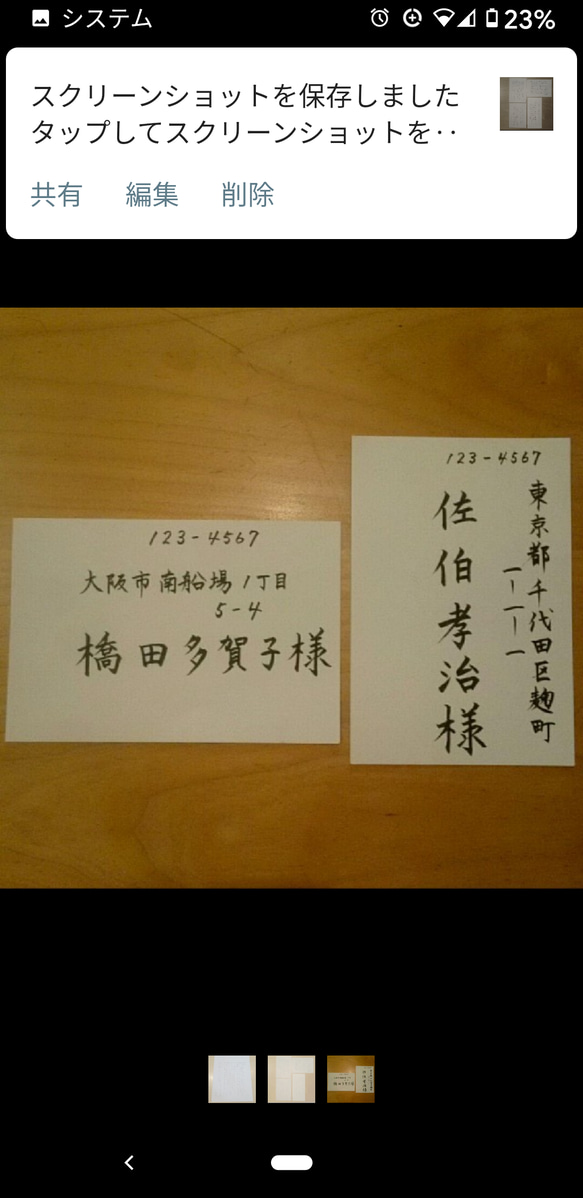 システム
23%
スクリーンショットを保存しました
タップしてスクリーンショットを‥
共有 編集 削除
123-4567
大阪市南船場1丁目
5-4
橋田多賀子様
123-4567
東京都千代田区麹町
一ー一ー一
佐伯孝治様